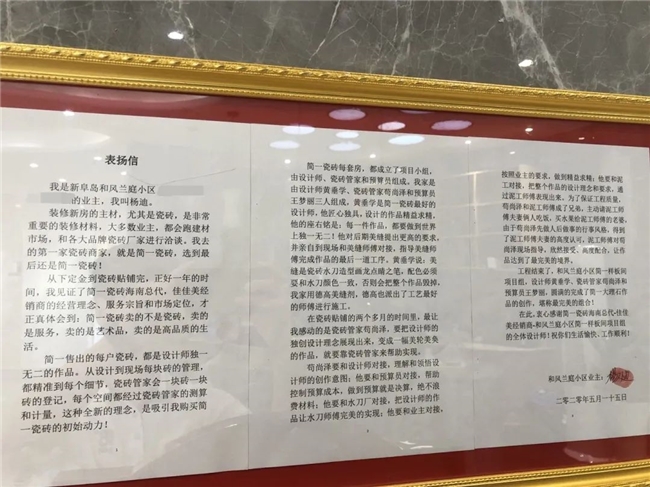 表扬信
我是新阜岛和风兰庭小区
的业主,我叫杨迪。
装修新房的主材,尤其是瓷砖,是非常
重要的装修材料,大多数业主,都会跑建材
市场,和各大品牌瓷砖厂家进行洽谈。我去
的第一家瓷砖商家,就是简一瓷砖,选到最
后还是简一瓷砖!
从下定金到瓷砖贴铺完,正好一年的时
间,我见证了简一瓷砖海南总代,佳佳美经
销商的经营理念、服务宗旨和市场定位,才
正真体会到:简一瓷砖卖的不是瓷砖,卖的
是服务,卖的是艺术品,卖的是高品质的生
活。
简一售出的每户瓷砖,都是设计师独一
无二的作品。从设计到现场每块砖的管理,
都精准到每个细节,瓷砖管家会一块砖一块
砖的登记,每个空间都经过瓷砖管家的测算
和计量,这种全新的理念,是吸引我购买简
一瓷砖的初始动力!
简一瓷砖每套房,都成立了项目小组,
由设计师、瓷砖管家和预算员组成。我家是
由设计师黄垂学、瓷砖管家苟尚泽和预算员
王梦丽三人组成,黄垂学是简一瓷砖最好的
设计师,他匠心独具,设计的作品精益求精,
他的座右铭是:每一件作品,都要做到世界
上独一无二!他对后期美缝提出更高的要求,
并亲自到现场和美缝师傅对接,指导美缝师
傅完成作品的最后一道工序。黄垂学说:美
缝是瓷砖水刀造型画龙点睛之笔,配色必须
要和水刀颜色一致,否则会把整个作品毁掉,
我家用德高美缝剂,德高也派出了工艺最好
的师傅进行施工。
在瓷砖贴铺的两个多月的时间里,最让
我感动的是瓷砖管家苟尚泽,要把设计师的
独创设计理念展现出来,变成一幅美轮美奂
的作品,就要靠瓷砖管家来帮助实现。
苟尚泽要和设计师对接,理解和领悟设
计师的创作意图;他要和预算员对接,帮助
控制预算成本,做到预算就是决算,绝不浪
费材料;他要和水刀厂对接,把设计师的作
品让水刀师傅完美的实现;他要和业主对接,
按照业主的要求,做到精益求精;他要和泥
工对接,把整个作品的设计理念和要求,通
过泥工师傅表现出来,为了保证工程质量,
苟尚泽和泥工师傅成了兄弟,主动请泥工师
傅夫妻俩人吃饭,买水果给泥工师傅的老婆,
由于苟尚泽先做人后做事的行事风格,得到
了泥工师傅夫妻的高度认可,泥工师傅对苟
尚泽现场指导,欣然接受,高度配合,让作
品达到了最完美的境界。
工程结束了,和风兰庭小区简一样板间
项目组,设计师黄垂学、瓷砖管家苟尚泽和
预算员王梦丽,圆满的完成了简一大理石作
品的创作,堪称最完美的组合!
在此,衷心感谢简一瓷砖海南总代-佳佳
美经销商-和风兰庭小区简一样板间项目组
的全体设计师!祝你们生活愉快、工作顺利!
和风兰庭小区业主:
二〇二〇年五月一十五日